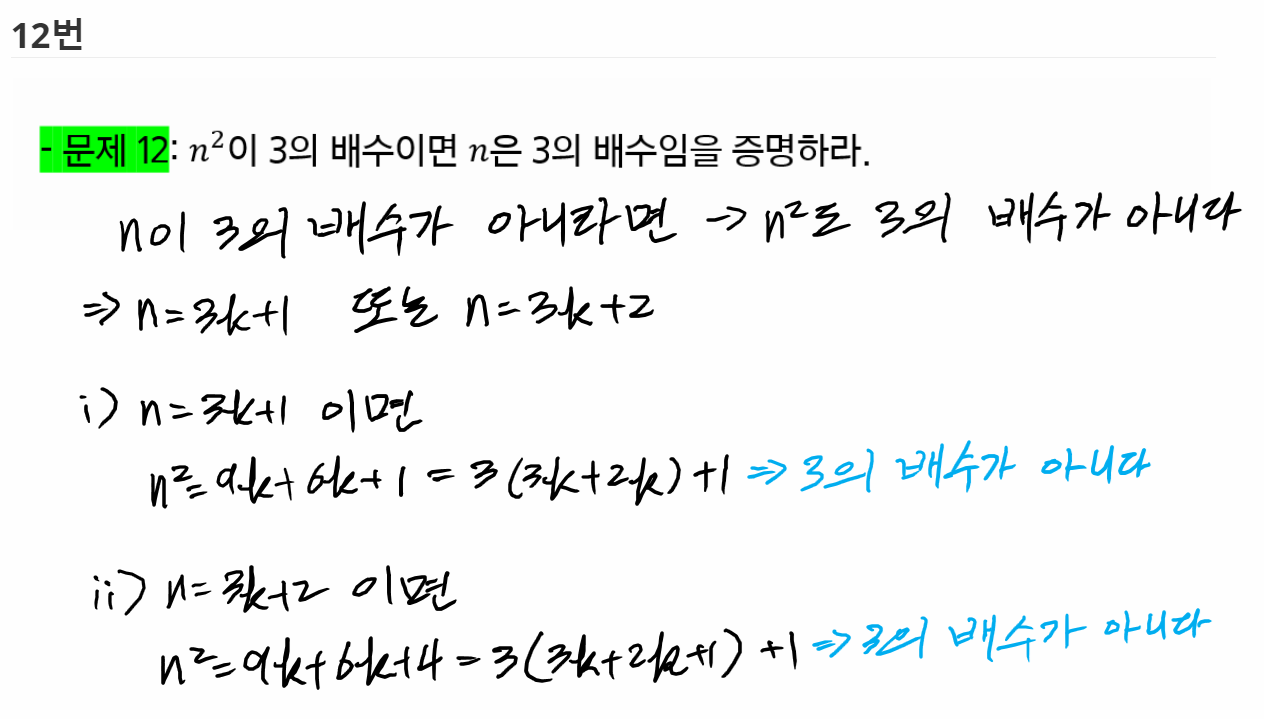 12번
- 문제 12: n²이 3의 배수이면 n은 3의 배수임을 증명하라.
n이 3의 배수가 아니라면 → n²도 3의 배수가 아니다
⇒ n=3k+1 또는 n=3k+2
i) n=3k+1 이면
n²=9k+6k+1 = 3(3k+2k)+1 ⇒ 3의 배수가 아니다
ii) n=3k+2 이면
n²=9k+6k+4=3(3k+2k+1)+1 ⇒ 3의 배수가 아니다